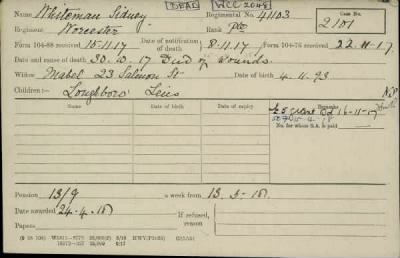 DEAD WCC 2048
Name Whiteman Sidney Regimental No. 41103 Case No.
Regiment Worcester Rank Pte 2101
Form 104-88 received 15.11.17 Date of notification of death 8.11.17 Form 104-76 received 22.11.17.
Date and cause of death 30.10.17 Died of Wounds.
Widow Mabel 23 Salmon St Date of birth 4.11.93
Children:- Loughboro' Leics
Name Date of birth Date of expiry Remarks
£5 grant 16-11-17
No. for whom S.A. is paid
Pension 13/9 a week from 13.5.18.
Date awarded 24-4-18 If refused, reason
Papers